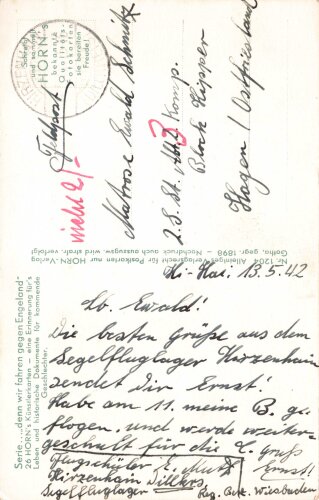 Schreibt
und sendet
HORN's
bekannte
Qualitäts-
fotokarten
sie bereiten
Freude!
Feldpost
Matrose Ewald Schmitz
2. S. St. Abt. 3 Komp.
Block Lipper
Hagen / Ostfriesland
Nr. 1204 Alleiniges Verlagsrecht für Postkarten nur HORN-Verlag
Gotha, gegr. 1898 – Nachdruck auch auszugsw. wird strafr. verfolgt
Serie: „...denn wir fahren gegen Engeland“
26 HORN's Künstlerkarten – eine Erinnerung für's
Leben und historische Dokumente für kommende
Geschlechter.
Hi-Hai, 13.5.42
Lb. Ewald!
Die besten Grüße aus dem
Segelfluglager Hirzenhain
sendet dir Ernst!
Habe am 11. meine B. ge-
flogen, und werde weiter-
geschult für die C. Gruß
Ernst!
Flugschüler E. Mutz
Hirzenhain Dillkrs
Segelfluglager Reg. Bez. Wiesbaden